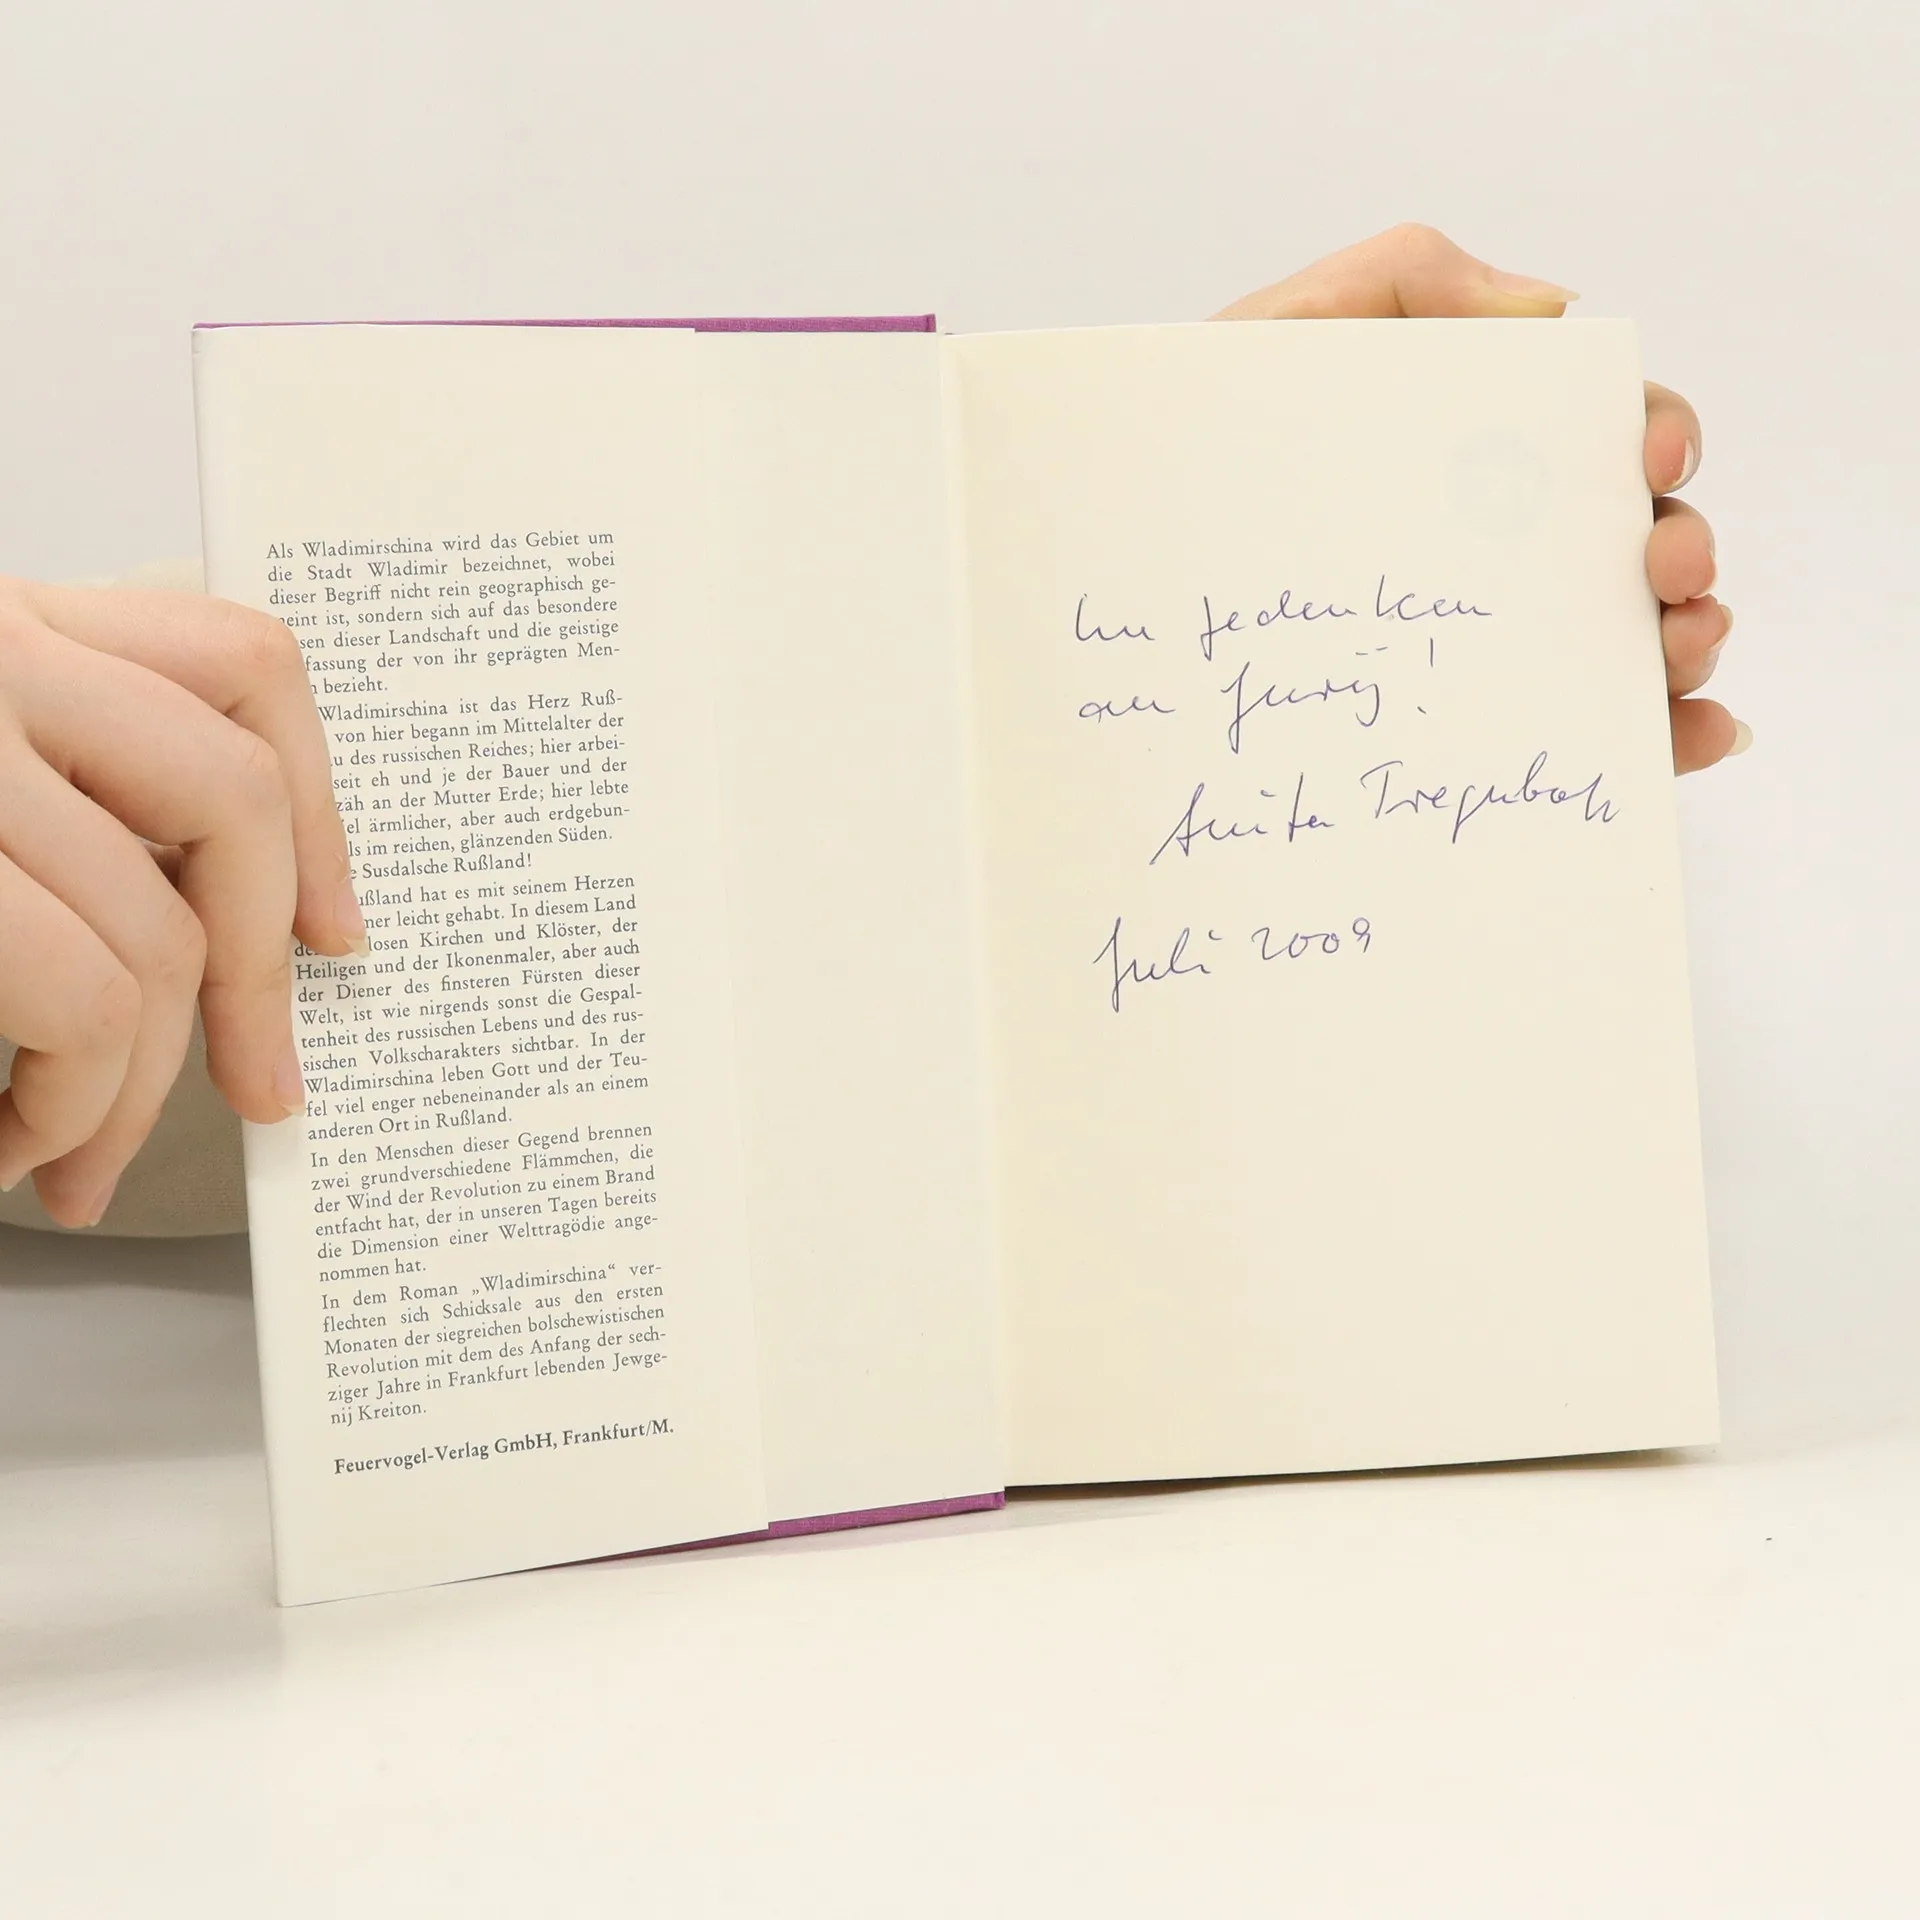 Als Wladimirschina wird das Gebiet um
die Stadt Wladimir bezeichnet, wobei
dieser Begriff nicht rein geographisch ge-
eint ist, sondern sich auf das besondere
sen dieser Landschaft und die geistige
fassung der von ihr geprägten Men-
bezieht.
Wladimirschina ist das Herz Ruß-
von hier begann im Mittelalter der
u des russischen Reiches; hier arbei-
seit eh und je der Bauer und der
zäh an der Mutter Erde; hier lebte
iel ärmlicher, aber auch erdgebun-
ls im reichen, glänzenden Süden.
e Susdalsche Rußland!
ußland hat es mit seinem Herzen
mer leicht gehabt. In diesem Land
de losen Kirchen und Klöster, der
Heiligen und der Ikonenmaler, aber auch
der Diener des finsteren Fürsten dieser
Welt, ist wie nirgends sonst die Gespal-
tenheit des russischen Lebens und des rus-
sischen Volkscharakters sichtbar. In der
Wladimirschina leben Gott und der Teu-
fel viel enger nebeneinander als an einem
anderen Ort in Rußland.
In den Menschen dieser Gegend brennen
zwei grundverschiedene Flämmchen, die
der Wind der Revolution zu einem Brand
entfacht hat, der in unseren Tagen bereits
die Dimension einer Welttragödie ange-
nommen hat.
In dem Roman „Wladimirschina“ ver-
flechten sich Schicksale aus den ersten
Monaten der siegreichen bolschewistischen
Revolution mit dem des Anfang der sech-
ziger Jahre in Frankfurt lebenden Jewge-
nij Kreiton.
Feuervogel-Verlag GmbH, Frankfurt/M.
Im Gedenken
an Jurij!
Anita
Juli 2009